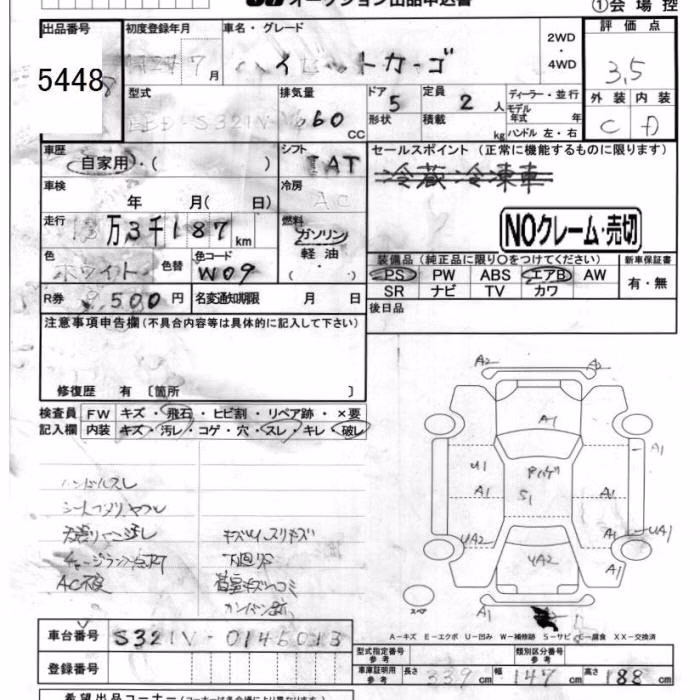 オークション出品申込書 ①会場控
出品番号 初度登録年月 車名・グレード 2WD・4WD 評価点
5448 7月 ハイゼットカーゴ 3.5
型式 排気量 ドア 5 定員 2 人 ディーラー・並行 外装 内装
EBD-S321V 660 CC 形状 積載 kg モデル 年式 年 C D
ハンドル 左・右
車歴 自家用・( ) シフト IAT セールスポイント (正常に機能するものに限ります)
車検 年 月( 日) 冷房 AC 冷蔵冷凍車
走行 13万3千187km 燃料 ガソリン 軽油 ( ・ ) NOクレーム・売切
色 ホワイト 色替 色コード W09 装備品 (純正品に限り○をつけてください) 新車保証書
PS PW ABS エアB AW 有・無
R券 円 名変通知期限 月 日 SR ナビ TV カワ
,500
注意事項申告欄 (不具合内容等は具体的に記入して下さい) 後日品
修復歴 有 〔箇所 〕
検査員 FW キズ・飛石・ヒビ割・リペア跡・×要
記入欄 内装 キズ・汚レ・コゲ・穴・スレ・キレ・破レ
ハンドルスレ
AC不良
下廻りサビ
A2 A2
A1
A1
U1 S1
A1 A1
UA2 A1 UA1
UA2
A1
スペア
A-キズ E-エクボ U-凹み W-補修跡 S-サビ C-腐食 XX-交換済
車台番号 S321V-0146013
型式指定番号 参考 類別区分番号 参考
登録番号 車庫証明用 参考 長さ 339cm 幅 147cm 高さ 188cm
希望出品コーナー